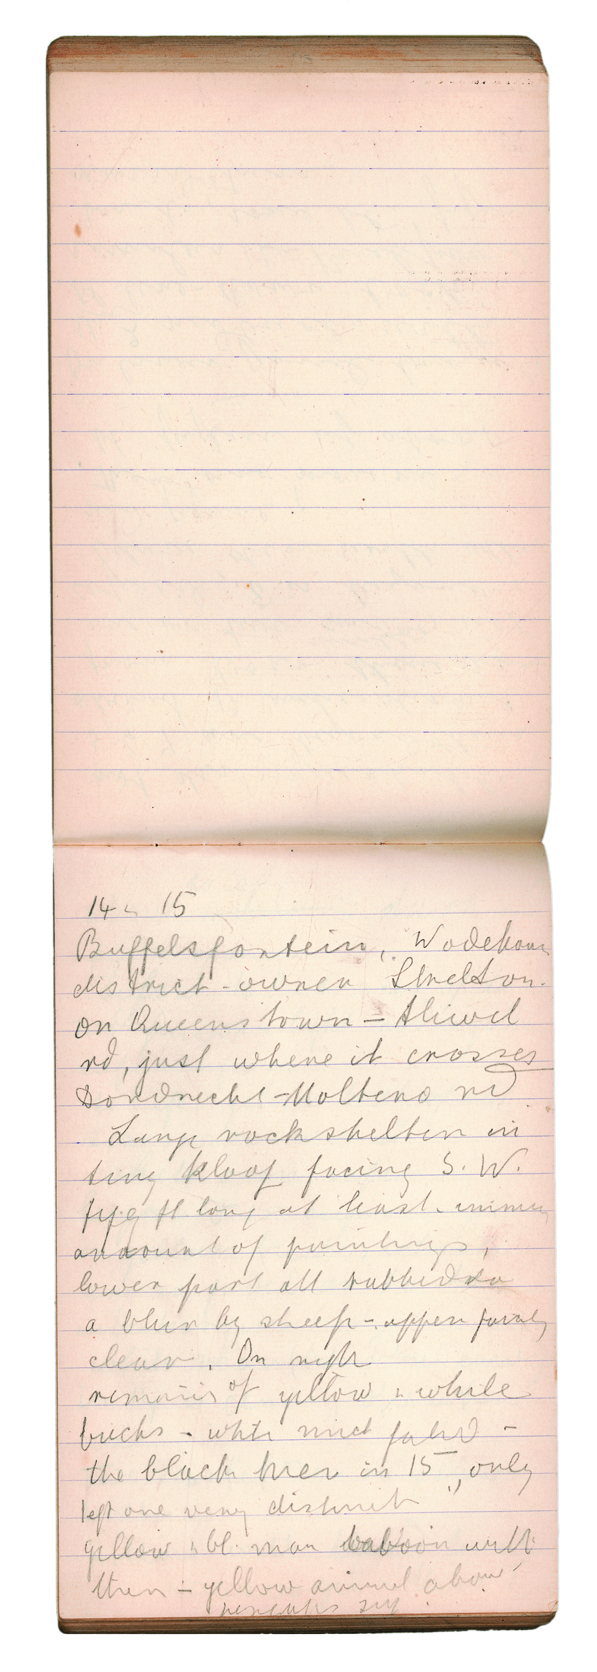 14 & 15
Buffelsfontein, Wodehouse
district - owner Shelton.
on Queenstown - Aliwal
rd, just where it crosses
Dordrecht - Molteno rd
Large rock shelter in
tiny kloof facing S.W.
ft long at least. immense
amount of paintings,
lower part all rubbed to
a blur by sheep - upper fairly
clear. On right
remains of yellow & white
bucks - white much faded -
the black men in 15, only
left one very distinct
yellow & bl. man baboon with
them - yellow animal above